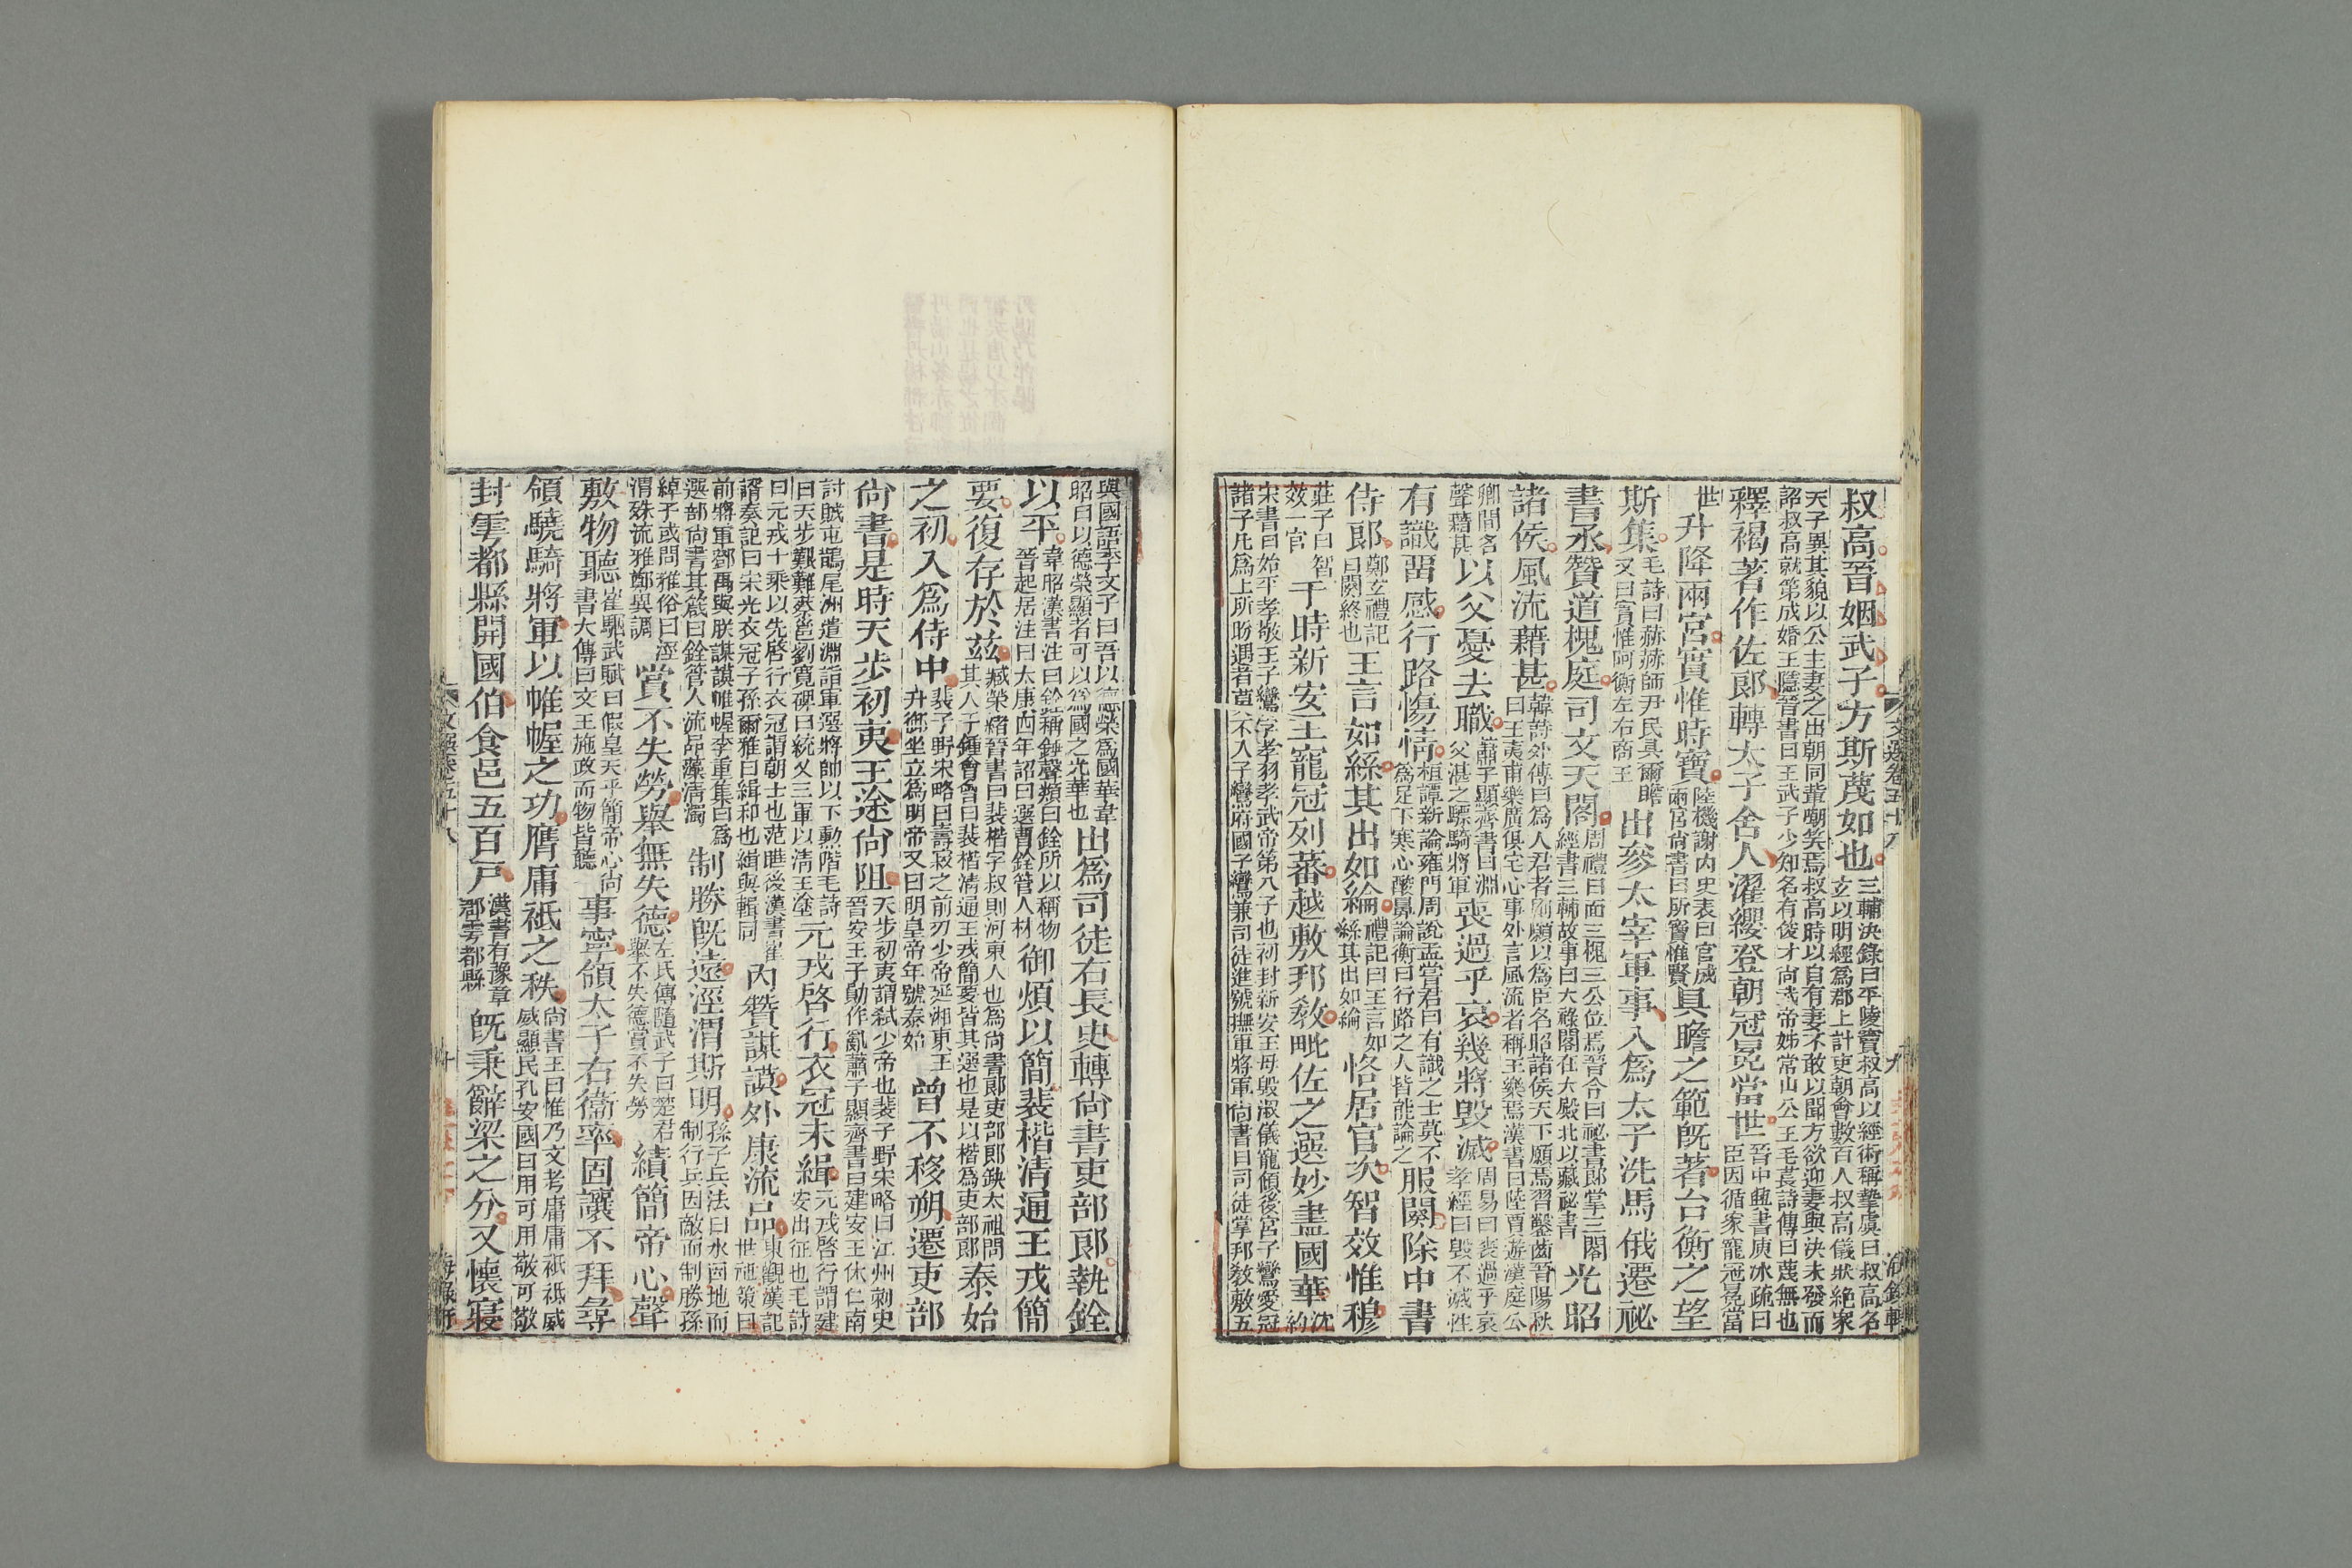 叔高晉姻武子方斯蔑如也三輔決錄曰平陵竇叔高以經術稱摯虞曰叔高名玄以明經爲郡上計吏朝會數百人叔高儀狀絶衆
天子異其貌以公主妻之出朝同輩嘲笑焉叔高時以自有妻不敢以聞方欲迎妻與決未發而詔叔高就第成婚王隱晉書曰王武子少知名有俊才尚武帝姊常山公主毛萇詩傳曰蔑無也
釋褐著作佐郎轉太子舍人濯纓登朝冠冕當世晉中興書庾冰疏曰臣因循家寵冠冕當
世升降兩宮實惟時寶陸機謝內史表曰官成兩宮尚書曰所寶惟賢具瞻之範旣著台衡之望
斯集毛詩曰赫赫師尹民具爾瞻又曰實惟阿衡左右商王出參太宰軍事入爲太子洗馬俄遷祕
書丞贊道槐庭司文天閣周禮曰面三槐三公位焉晉令曰祕書郎掌三閣經書三輔故事曰天祿閣在大殿北以藏祕書光昭
諸侯風流藉甚韓詩外傳曰爲人君者則願以爲臣名昭諸侯天下願焉習鑿齒晉陽秋曰王夷甫樂廣俱宅心事外言風流者稱王樂焉漢書曰陸賈遊漢庭公
卿間名聲藉甚以父憂去職蕭子顯齊書曰淵父湛之驃騎將軍喪過乎哀幾將毀滅周易曰喪過乎哀孝經曰毀不滅性
有識留感行路傷情桓譚新論雍門周說孟嘗君曰有識之士莫不爲足下寒心酸鼻論衡曰行路之人皆能論之服闋除中書
侍郎鄭玄禮記曰闋終也王言如絲其出如綸禮記曰王言如絲其出如綸恪居官次智效惟穆
莊子曰智效一官于時新安王寵冠列蕃越敷邦教毗佐之選妙盡國華沈約
宋書曰始平孝敬王子鸞字孝羽孝武帝第八子也初封新安王母殷淑儀寵傾後宮子鸞愛冠諸子凡爲上所盼遇者莫不入子鸞府國子鸞兼司徒進號撫軍將軍尚書曰司徒掌邦教敷五
文選卷五十八
九
海錄軒
與國語季文子曰吾以德榮爲國華韋昭曰以德榮顯者可以爲國之光華也出爲司徒右長史轉尚書吏部郎執銓
以平韋昭漢書注曰銓稱錘聲類曰銓所以稱物晉起居注曰太康四年詔曰選曹銓管人材御煩以簡裴楷清通王戎簡
要復存於茲臧榮緒晉書曰裴楷字叔則河東人也爲尚書郎吏部郎缺太祖問其人于鍾會會曰裴楷清通王戎簡要皆其選也是以楷爲吏部郎泰始
之初入爲侍中裴子野宋略曰壽寂之前刃少帝延湘東王升御坐立爲明帝又曰明皇帝年號泰始曾不移朔遷吏部
尚書是時天步初夷王途尚阻天步初夷謂弒少帝也裴子野宋略曰江州刺史晉安王子勛作亂蕭子顯齊書曰建安王休仁南
討賊屯鵲尾洲遣淵詣軍選將帥以下勳階毛詩曰天步艱難蔡邕劉寬碑曰統艾三軍以清王塗元戎啓行衣冠未緝元戎啓行謂建安出征也毛詩
曰元戎十乘以先啓行衣冠謂朝士也范曄後漢書霍諝奏記曰宋光衣冠子孫爾雅曰緝和也緝與輯同內贊謀謨外康流品東觀漢記世祖策曰
前將軍鄧禹與朕謀謨帷幄李重集曰爲選部尚書其箴曰銓管人流品藻清濁制勝旣遠涇渭斯明孫子兵法曰水因地而制行兵因敵而制勝孫
綽子或問雅俗曰涇渭殊流雅鄭異調賞不失勞舉無失德左氏傳隨武子曰楚君舉不失德賞不失勞績簡帝心聲
敷物聽崔駰武賦曰假皇天乎簡帝心尚書大傳曰文王施政而物皆聽事寧領太子右衞率固讓不拜尋
領驍騎將軍以帷幄之功膺庸祗之秩尚書王曰惟乃文考庸庸祗祗威威顯民孔安國曰用可用敬可敬
封雩都縣開國伯食邑五百戶漢書有豫章郡雩都縣旣秉辭梁之分又懷寢
文選卷五十八
十
海錄軒